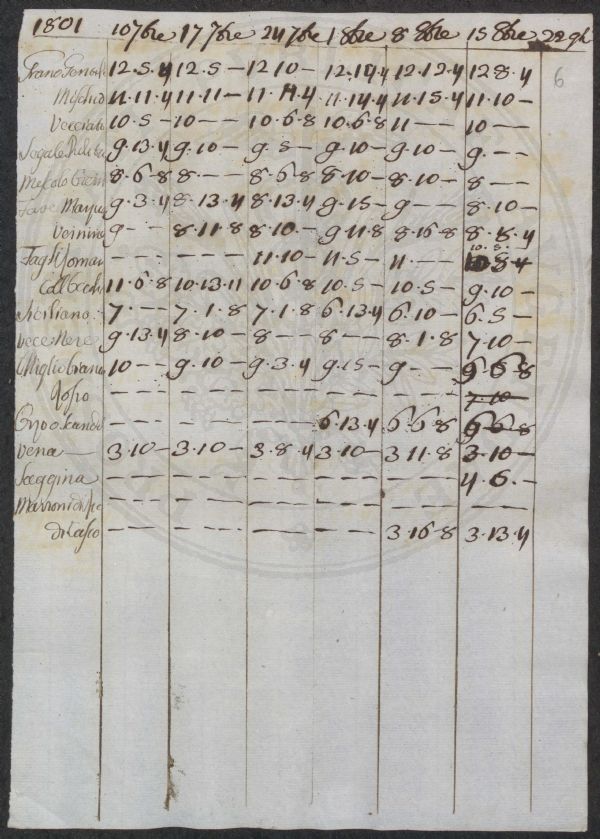 1801 10 7bre 17 7bre 24 7bre 1 8bre 8 8bre 15 8bre 22 8b
6
Grano 12.5.4 12.5— 12.10— 12.19.4 12.12.4 12.8.4
Mischio 11.11.4 11.11— 11.11.4 11.14.4 11.15.4 11.10—
Vecciato 10.5— 10—— 10.6.8 10.6.8 11—— 10——
Segale 9.13.4 9.10— 9.5— 9.10— 9.10— 9.——
8.6.8 8.—— 8.6.8 8.10— 8.10— 8——
Fave 9.3.4 8.13.4 8.13.4 9.15— 9—— 8.10—
Vernine 9—— 8.11.8 8.10— 9.11.8 8.16.8 8.8.4
10.5.
Fagli ——— ——— 11.10— 11.5— 11.—— 10.8.4
Coll'occhio 11.6.8 10.13.11 10.6.8 10.5— 10.5— 9.10—
Siciliano 7.—— 7.1.8 7.1.8 6.13.4 6.10— 6.5—
Vece Nere 9.13.4 8.10— 8—— 8—— 8.1.8 7.10—
Miglio 10—— 9.10— 9.3.4 9.15— 9—— 9.6.8
Rosso ——— ——— ——— ——— ——— 7.10—
——— ——— ——— 6.13.4 6.6.8 6.6.8
Vena 3.10— 3.10— 3.8.4 3.10— 3.11.8 3.10—
Saggina ——— ——— ——— ——— ——— 4.6.—
Marroni ——— ——— ——— ——— ——— ———
——— ——— ——— ——— 3.16.8 3.13.4